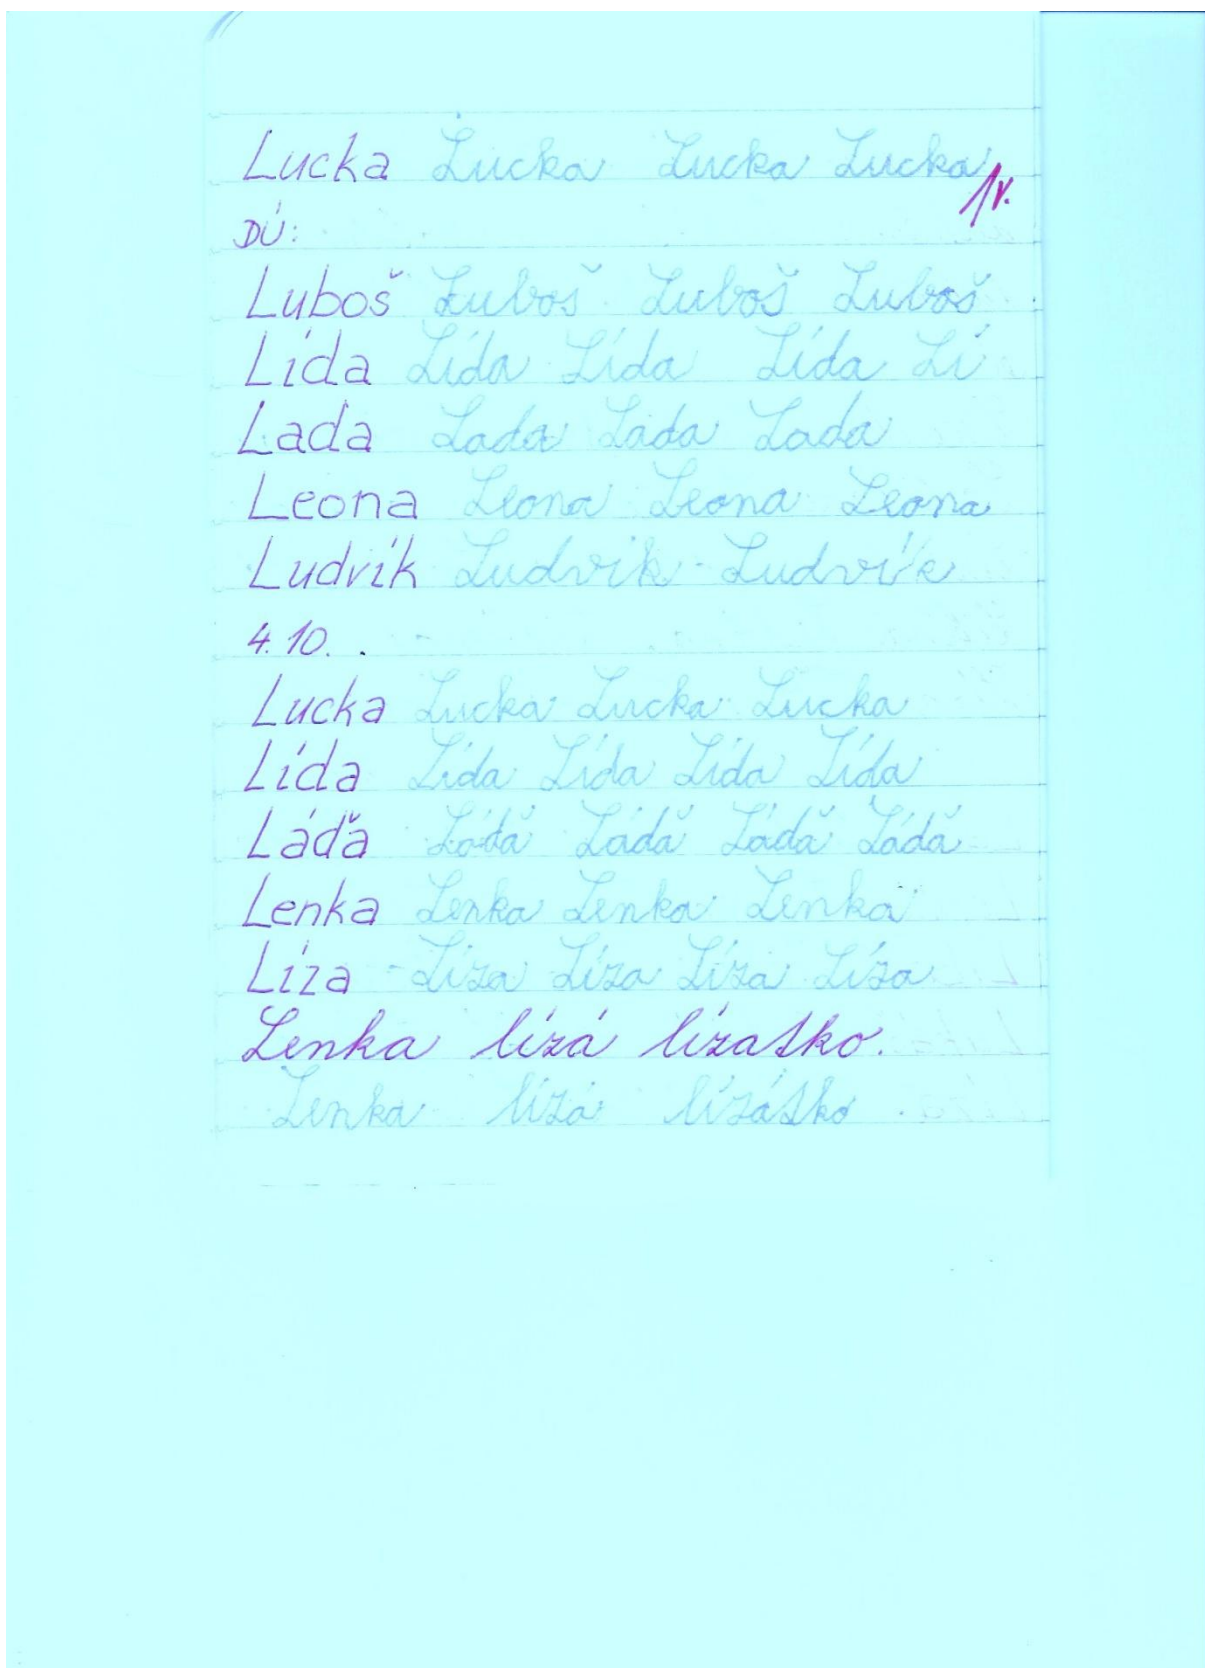 Lucka Lucka Lucka Lucka
1v.
DÚ:
Luboš Luboš Luboš Luboš
Lída Lída Lída Lída Lí
Lada Lada Lada Lada
Leona Leona Leona Leona
Ludvík Ludvik Ludvík
4. 10.
Lucka Lucka Lucka Lucka
Lída Lída Lída Lída Lída
Láďa Láďa Láďa Láďa Láďa
Lenka Lenka Lenka Lenka
Líza Líza Líza Líza Líza
Lenka lízá lízatko.
Lenka lízá lízátko.